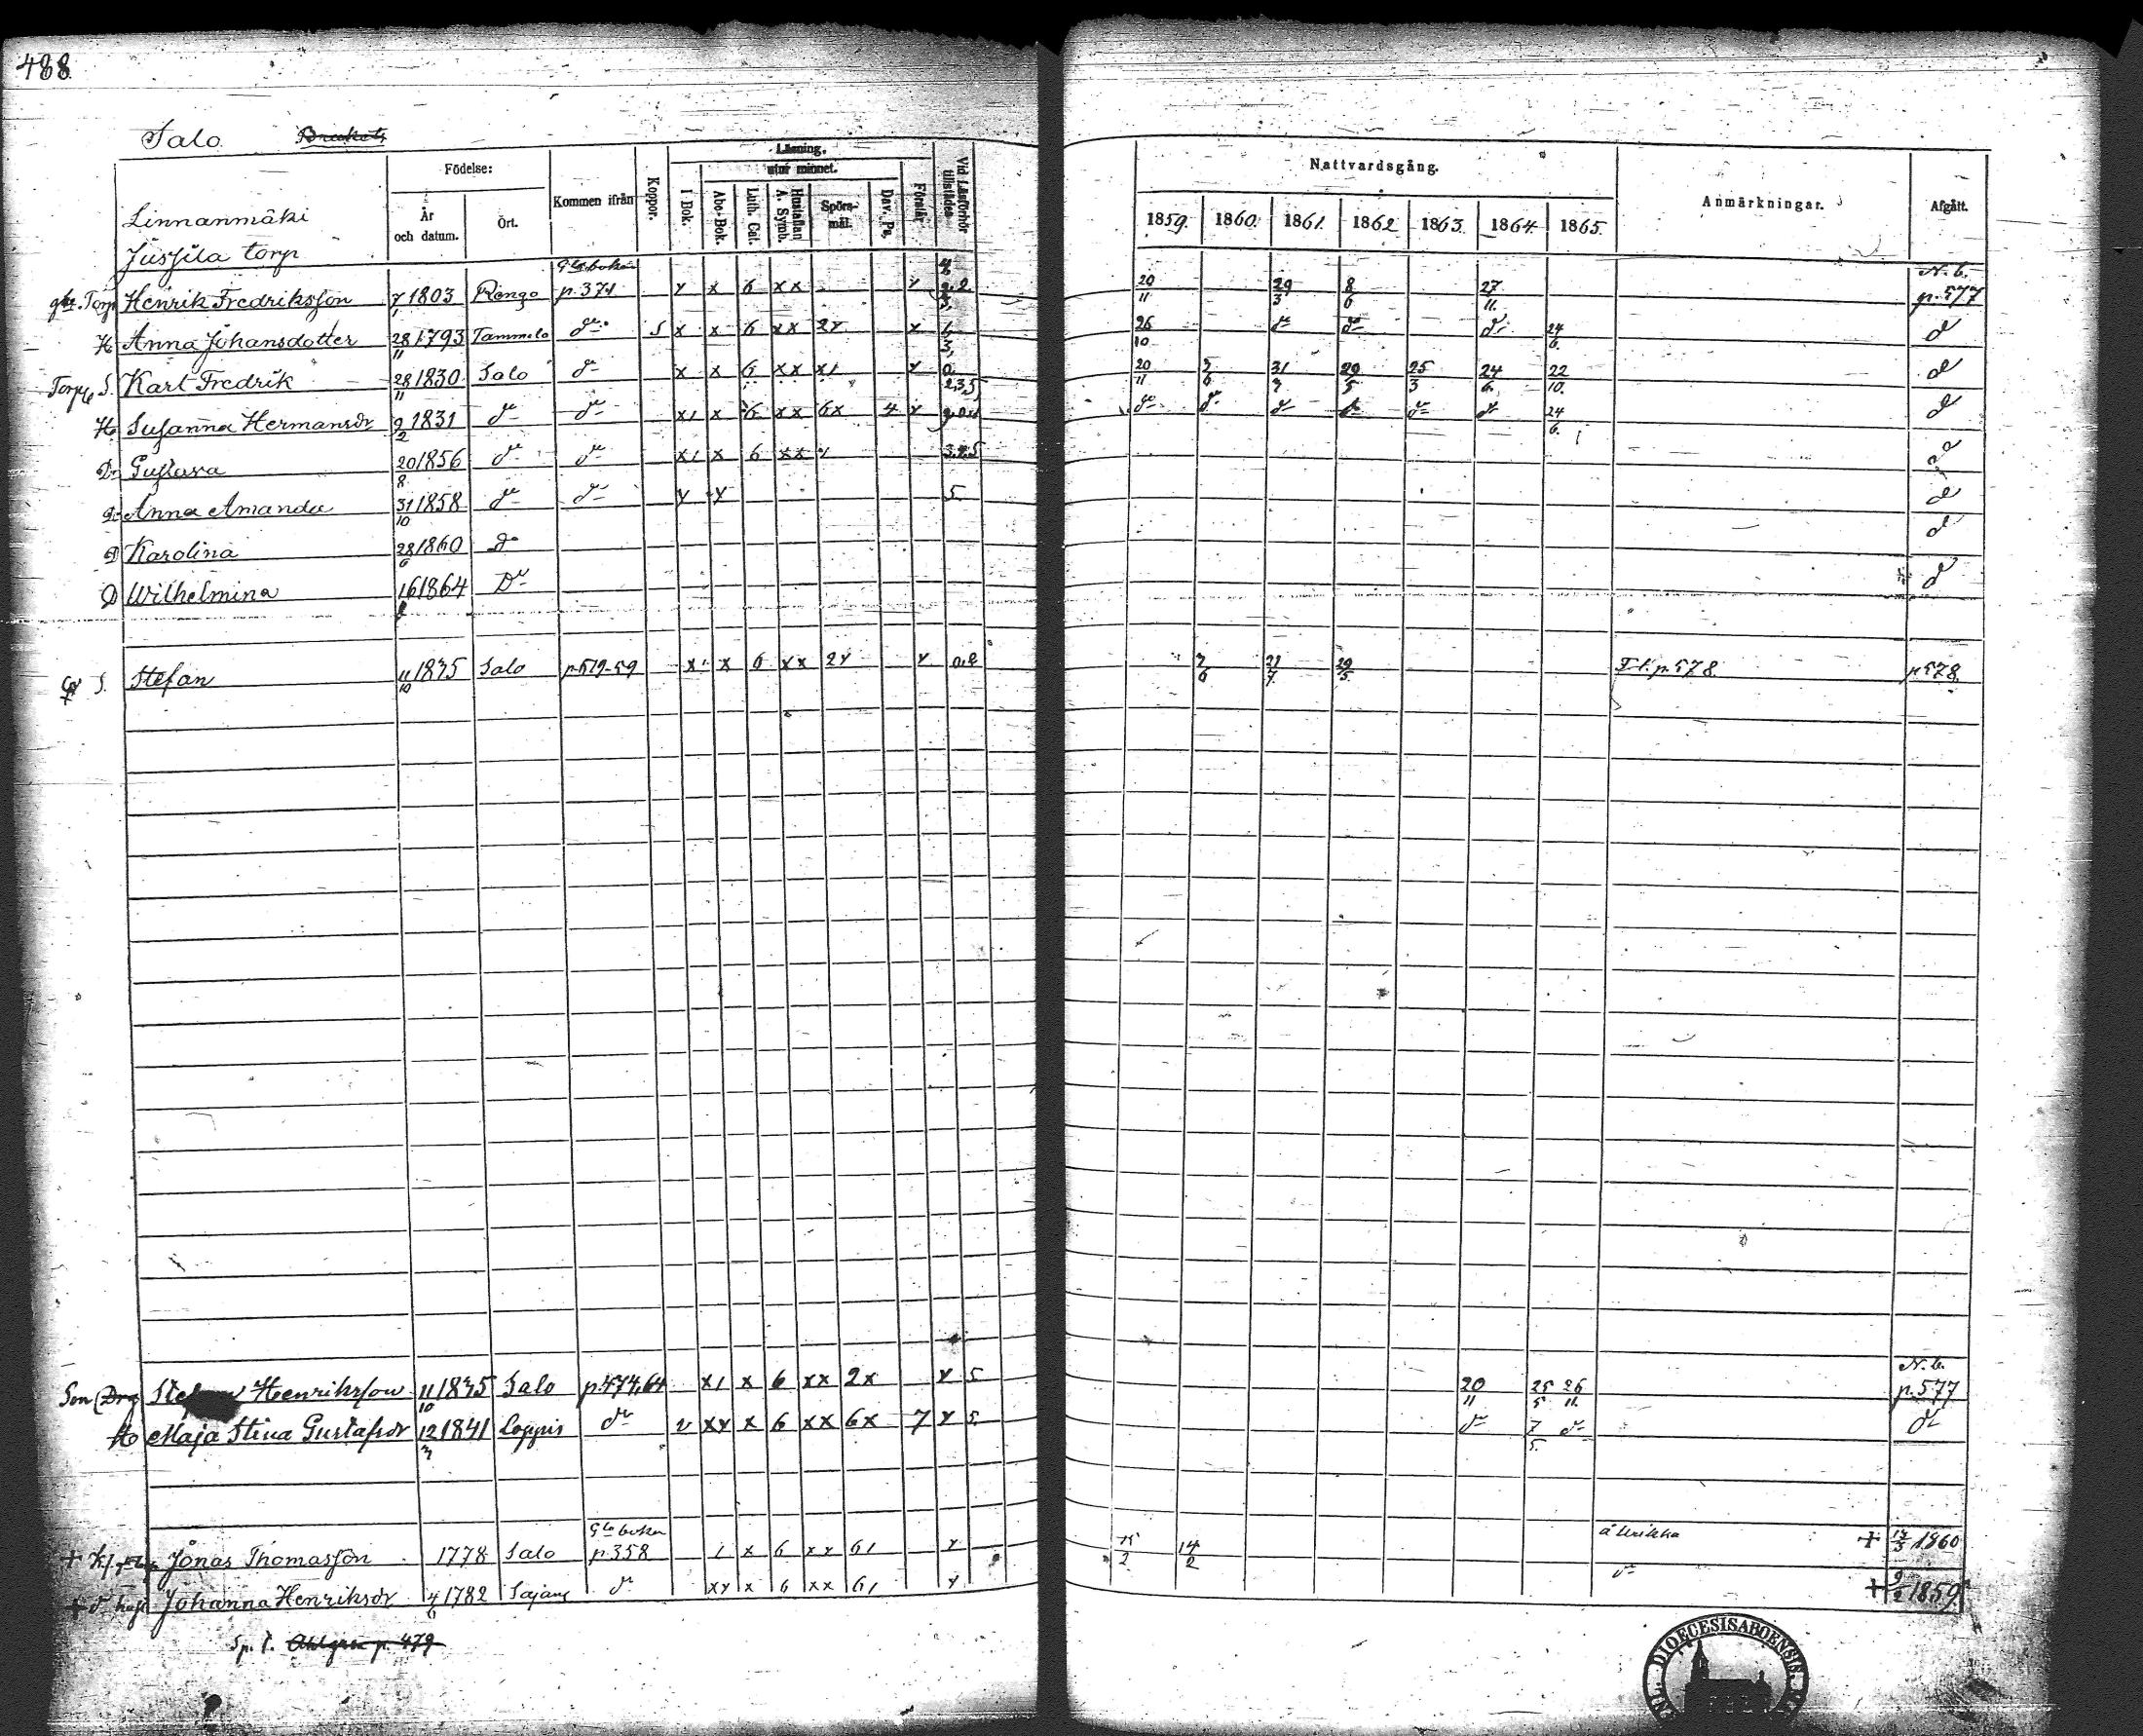 488
Salo
Födelse: Läsning. Nattvardsgång.
utur minnet.
År och datum. Ort. Kommen ifrån Koppor. I Bok. Abc-Bok. Luth. Cat. Hustaflan A. Symb. Spörsmål. Dav. Ps. Förstår. Vid Läsförhör tillstädes 1859. 1860. 1861. 1862 1863. 1864 1865. Anmärkningar. Afgått.
Linnanmäki
Jussila torp
Gla boken N. b.
Torp Henrik Fredriksson 7/1 1803 Rengo p. 371 x x 6 xx x 20/11 29/3 8/6 27/11 p. 577
H. Anna Johansdotter 28/11 1793 Tammela do S x x 6 xx 2x x 26/10 do do do 24/6 do
Torp S. Karl Fredrik 28/11 1830 Salo do x x 6 xx x1 x 20/11 31 29/5 25/3 24/6 22/10 do
H. Susanna Hermansdr 9/2 1831 do do x1 x 6 xx 6x 4 x do do do do do do 24/6. do
Dr Gustava 20/8 1856 do do x1 x 6 xx do
Anna Amanda 31/10 1858 do do x x 5 do
D Karolina 28/6 1860 do do
D Wilhelmina 16 1864 Do do
S. Stefan 11/10 1835 Salo p. 519-59 x1 x 6 xx 2x x 29/5 p. 578. p 578.
N. b.
Son (Drg Henriksson 11/10 1835 Salo p. 474, 64 x1 x 6 xx 2x x 5 20/11 25/5 26/11. p. 577
Ho Maja Stina Gustafsdr 12/3 1841 Loppis do v xx x 6 xx 6x 7 x 5 do 7/5. do do
Gla boken
+ Jonas Thomasson 1778 Salo p. 358 1 x 6 xx 61 x 14/2 + 1860
+ do Johanna Henriksdr 1782 do xx x 6 xx 61 x do + 1859
Sp. t. Ahlgren p. 479
DIOECESIS ABOENSIS